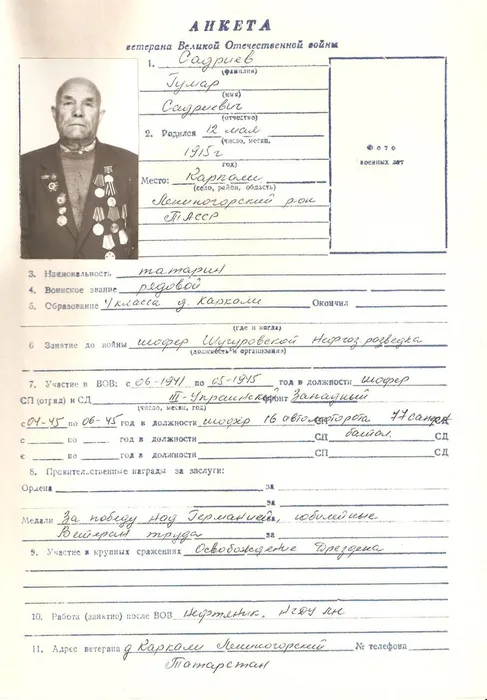 АНКЕТА
ветерана Великой Отечественной войны
1. Садриев
(фамилия)
Гумар
(имя)
Садриевич
(отчество)
2. Родился 12 мая
(число, месяц,
1915 г
год)
Место: Каркали
(село, район, область)
Лениногорский р-он
ТАССР
Фото
военных лет
3. Национальность татарин
4. Воинское звание рядовой
5. Образование 4 класса д. Каркали Окончил
(где и когда)
6 Занятие до войны шофер Шугуровской Нефтеразведка
(должность и организация)
7. Участие в ВОВ: с 06-1941 по 05-1945 год в должности шофер
СП (отряд) и СД III-Украинский фронт Западный
(число, месяц, год)
с 04-45 по 06-45 год в должности шофер 16 автомоторота 77
с по год в должности СП батал. СД
с по год в должности СП СД
8. Правительственные награды за заслуги:
Ордена за
за
Медали За победу над Германией, юбилейные
Ветеран труда за
9. Участие в крупных сражениях Освобождение Дрездена
10. Работа (занятие) после ВОВ Нефтяник, НГДУ
11. Адрес ветерана д Каркали Лениногорский № телефона
Татарстан